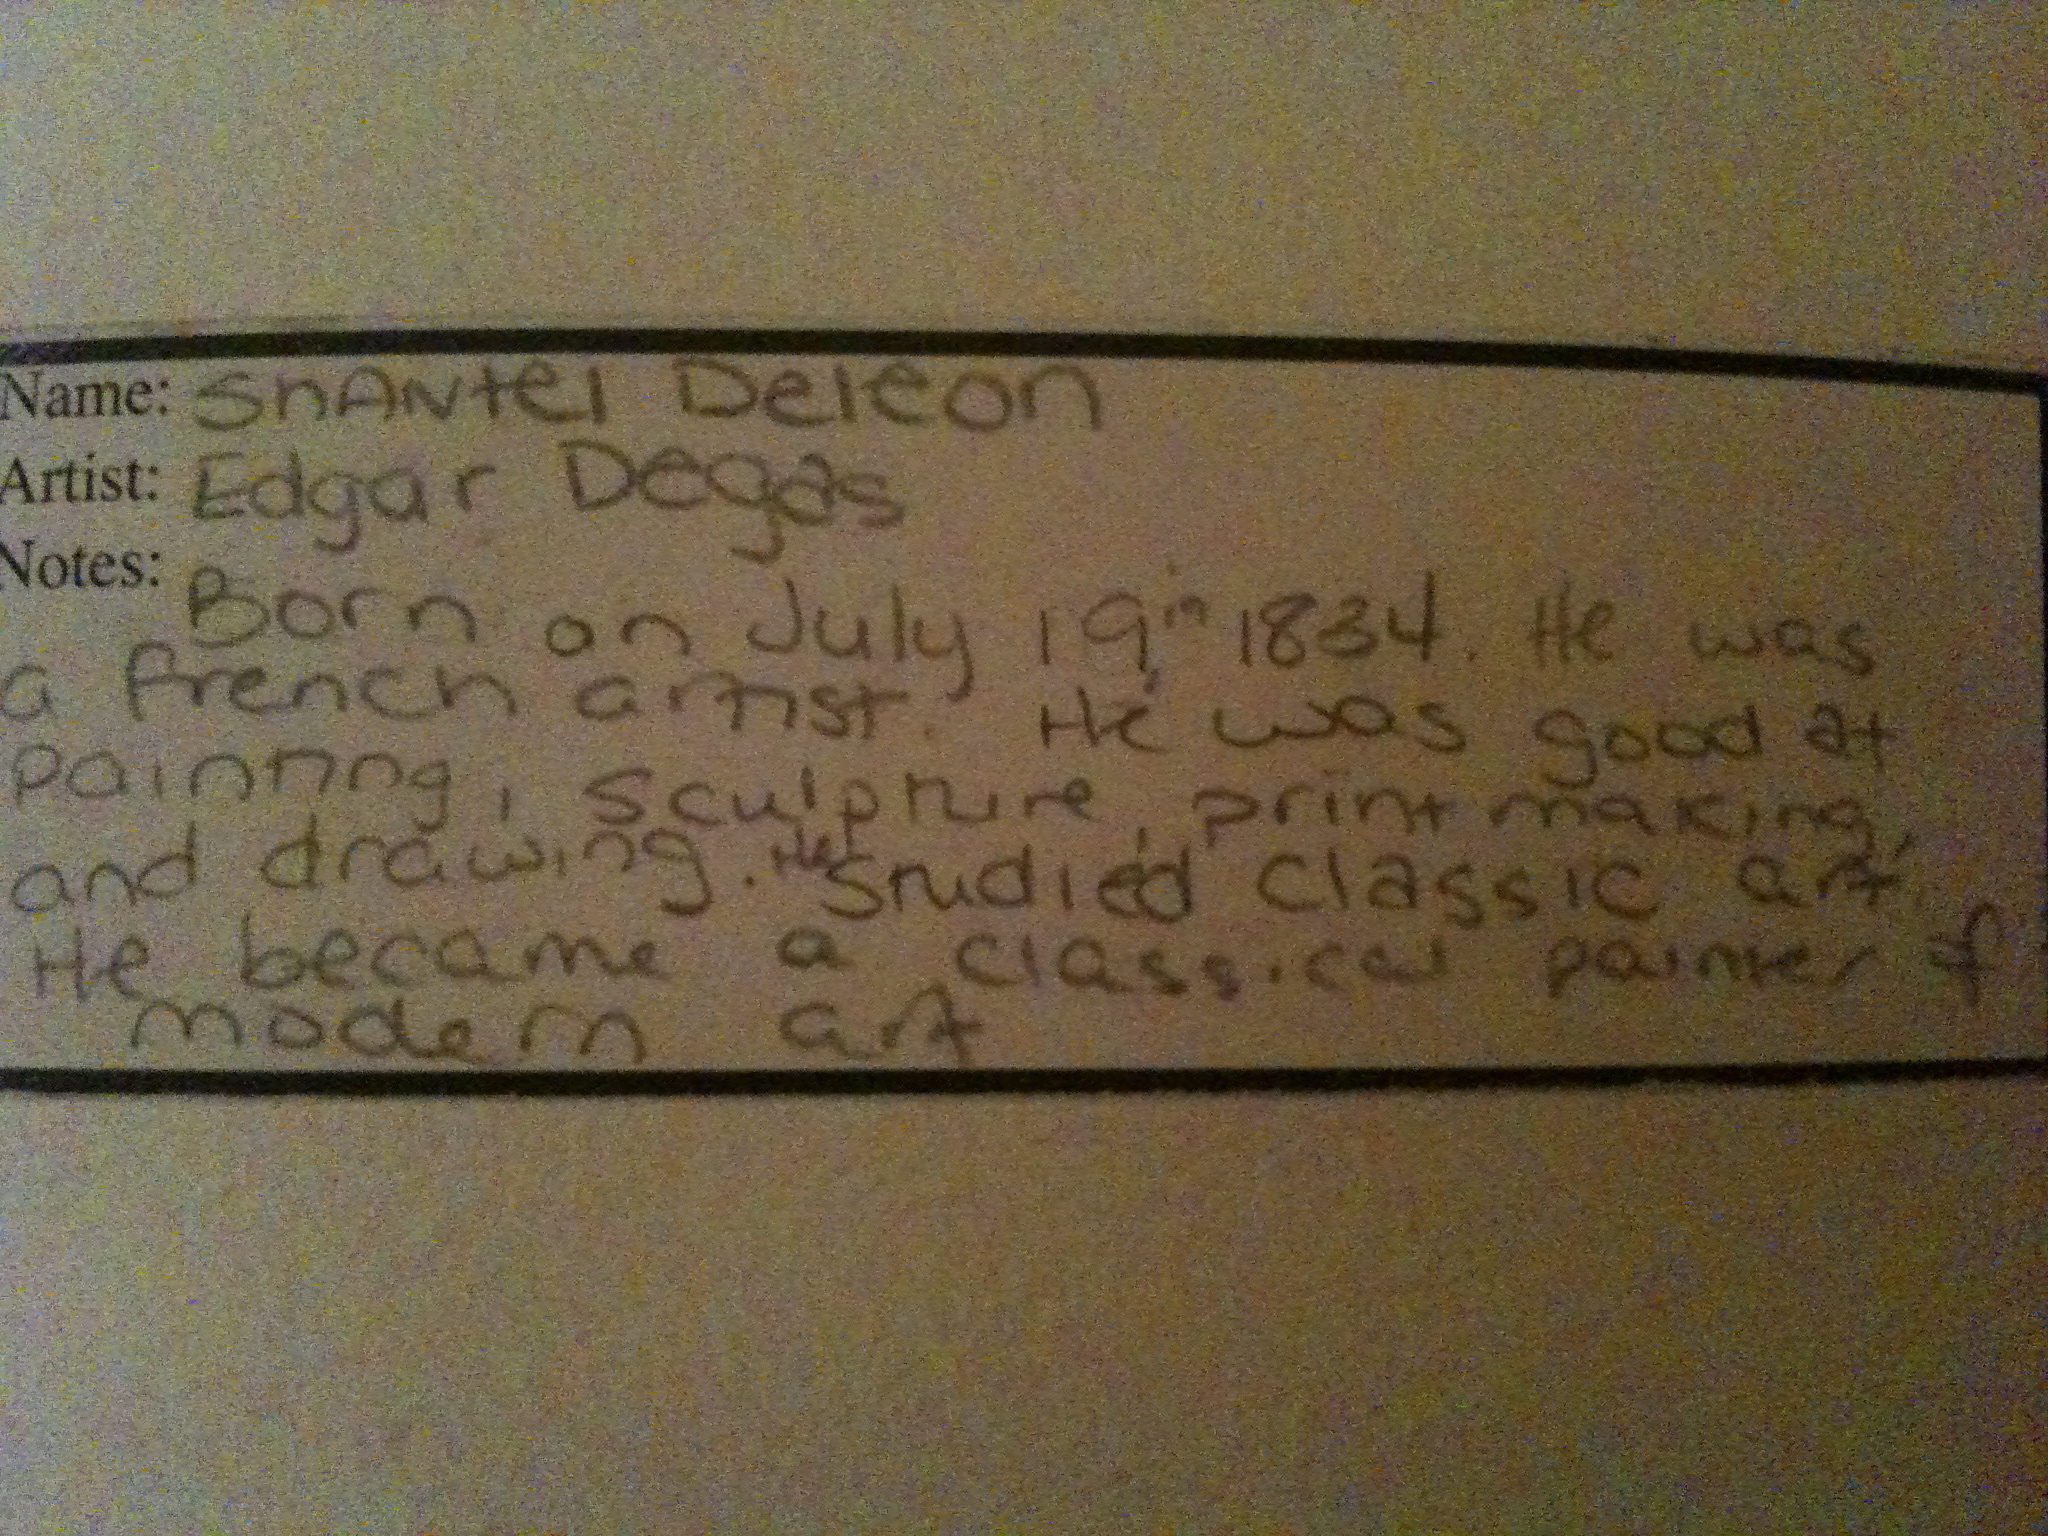 Name: ShANtel Deleon
Artist: Edgar Degas
Notes:
Born on July 19 in 1834. He was
a french artist. He was good at
painting, sculpture, printmaking,
and drawing. He studied classic art.
He became a classical painter of
modern art